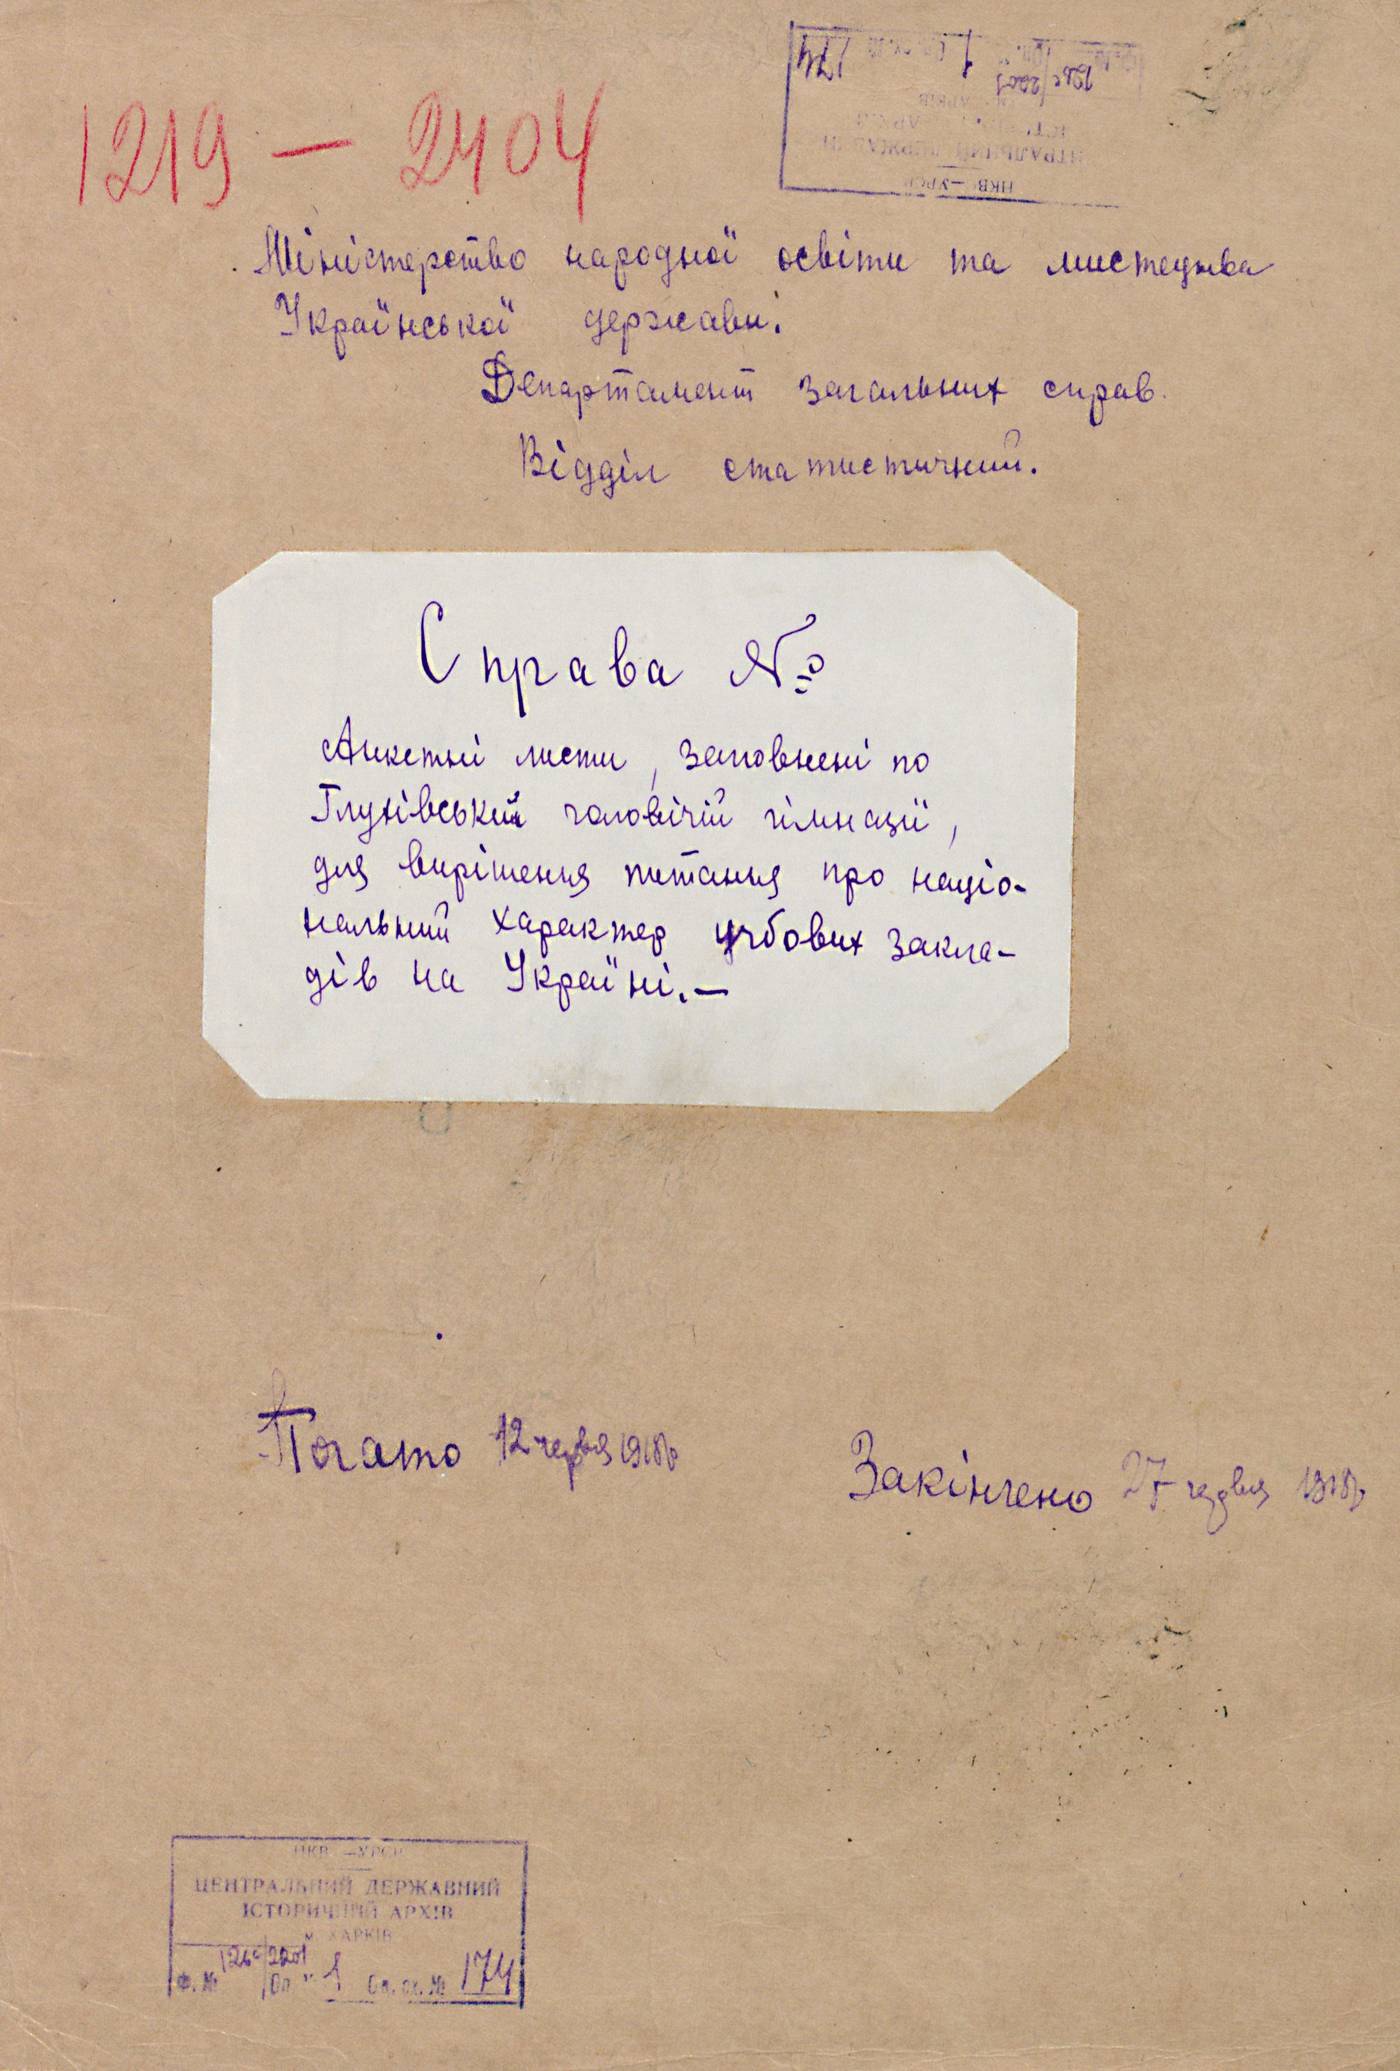 1219 — 2404
Міністерство народної освіти та мистецтва
Української держави.
Департамент загальних справ.
Відділ статистичний.
Справа №
Анкетні листи, заповнені по
Глухівській чоловічій гімназії,
для вирішення питання про націо-
нальний характер учбових закла-
дів на Україні.—
Почато 12 червня 1918р
Закінчено 27 червня 1918р
НКВС—УРСР
ЦЕНТРАЛЬНИЙ ДЕРЖАВНИЙ
ІСТОРИЧНИЙ АРХІВ
м. ХАРКІВ
Ф. № /2201 Оп. 1 Од. сх. № 174